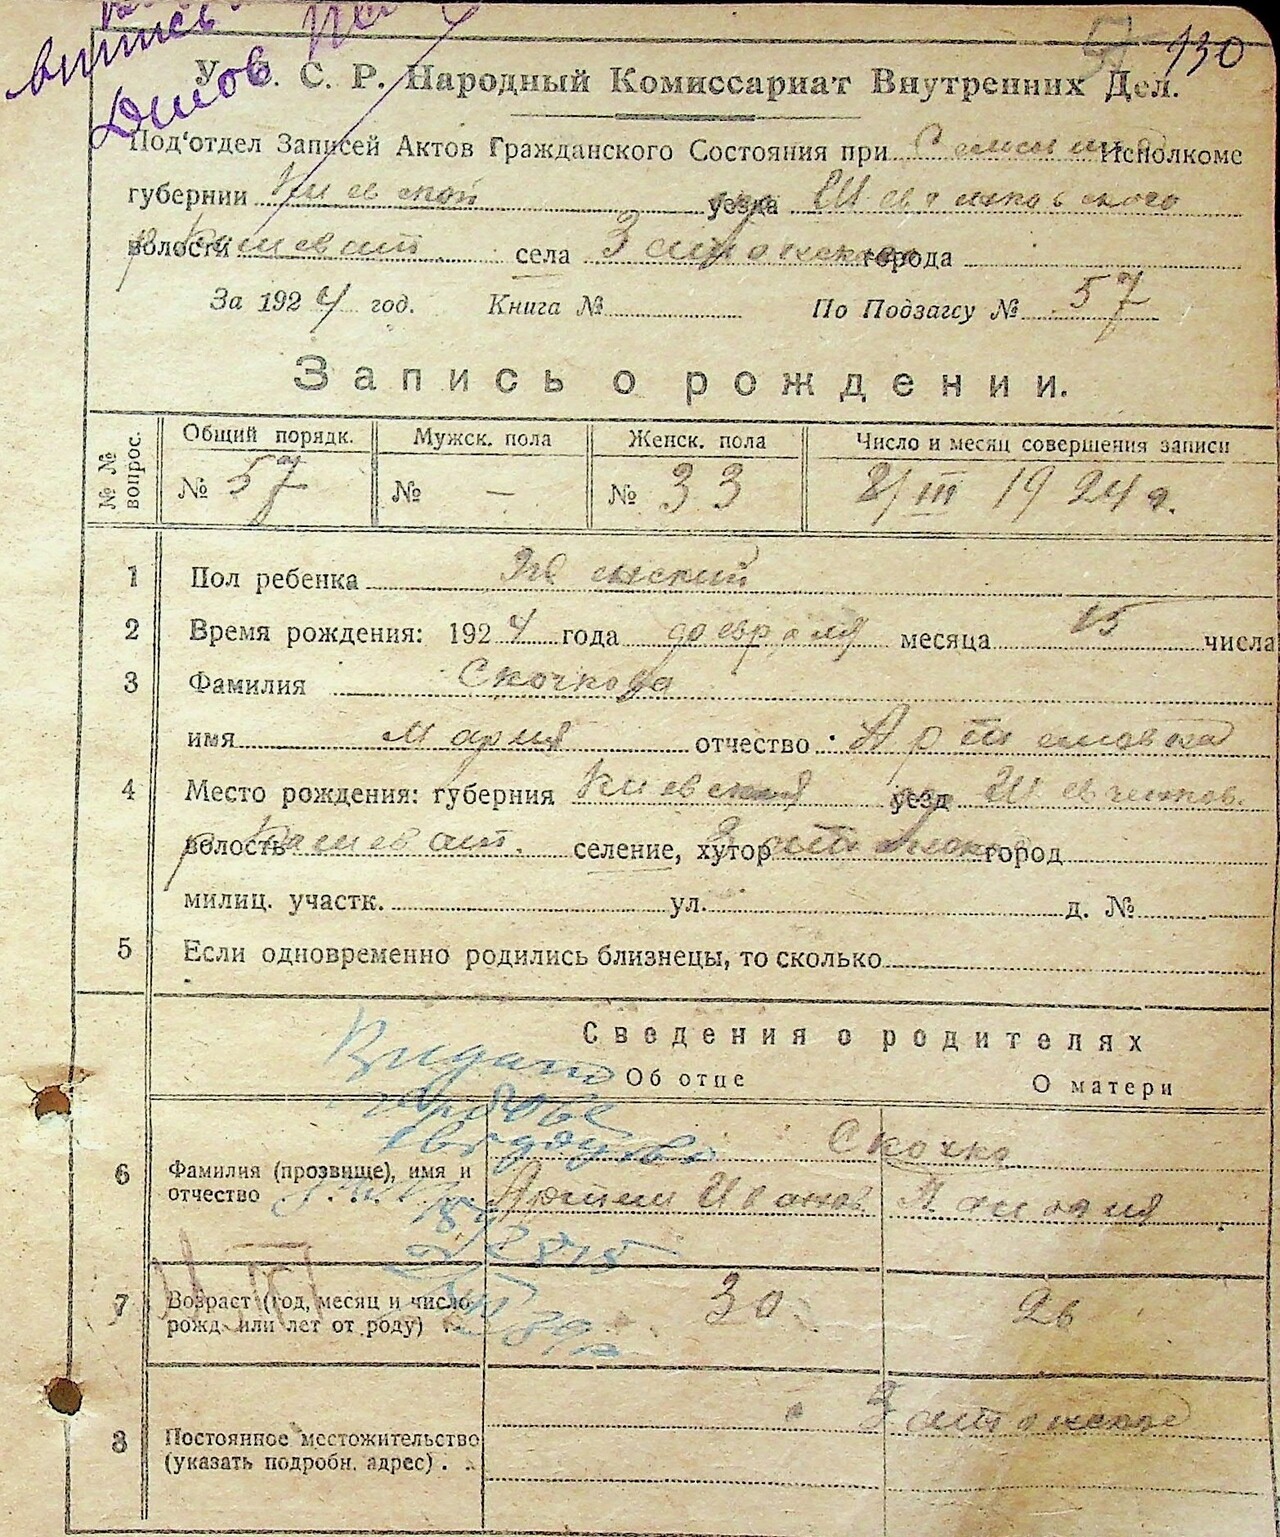 130
выпись
У. С. С. Р. Народный Комиссариат Внутренних Дел.
Под'отдел Записей Актов Гражданского Состояния при Исполкоме
губернии Киевской уезда Шевченковского
волости р Кашеват. села города
За 1924 год. Книга № По Подзагсу № 57
Запись о рождении.
№ № вопрос.
Общий порядк. Мужск. пола Женск. пола Число и месяц совершения записи
№ 57 № — № 33 8/III 1924 г.
1 Пол ребенка Женский
2 Время рождения: 1924 года февраля месяца 15 числа
3 Фамилия Скочкова
имя Мария отчество Артемовна
4 Место рождения: губерния Киевская уезд Шевченков.
волость р Кашеват. селение, хутор город
милиц. участк. ул. д. №
5 Если одновременно родились близнецы, то сколько
Сведения о родителях
Об отце О матери
Видано
Скочко
6 Фамилия (прозвище), имя и
отчество Артем Иванов
7 Возраст (год, месяц и число
рожд. или лет от роду) 30 26
8 Постоянное местожительство
(указать подробн. адрес)